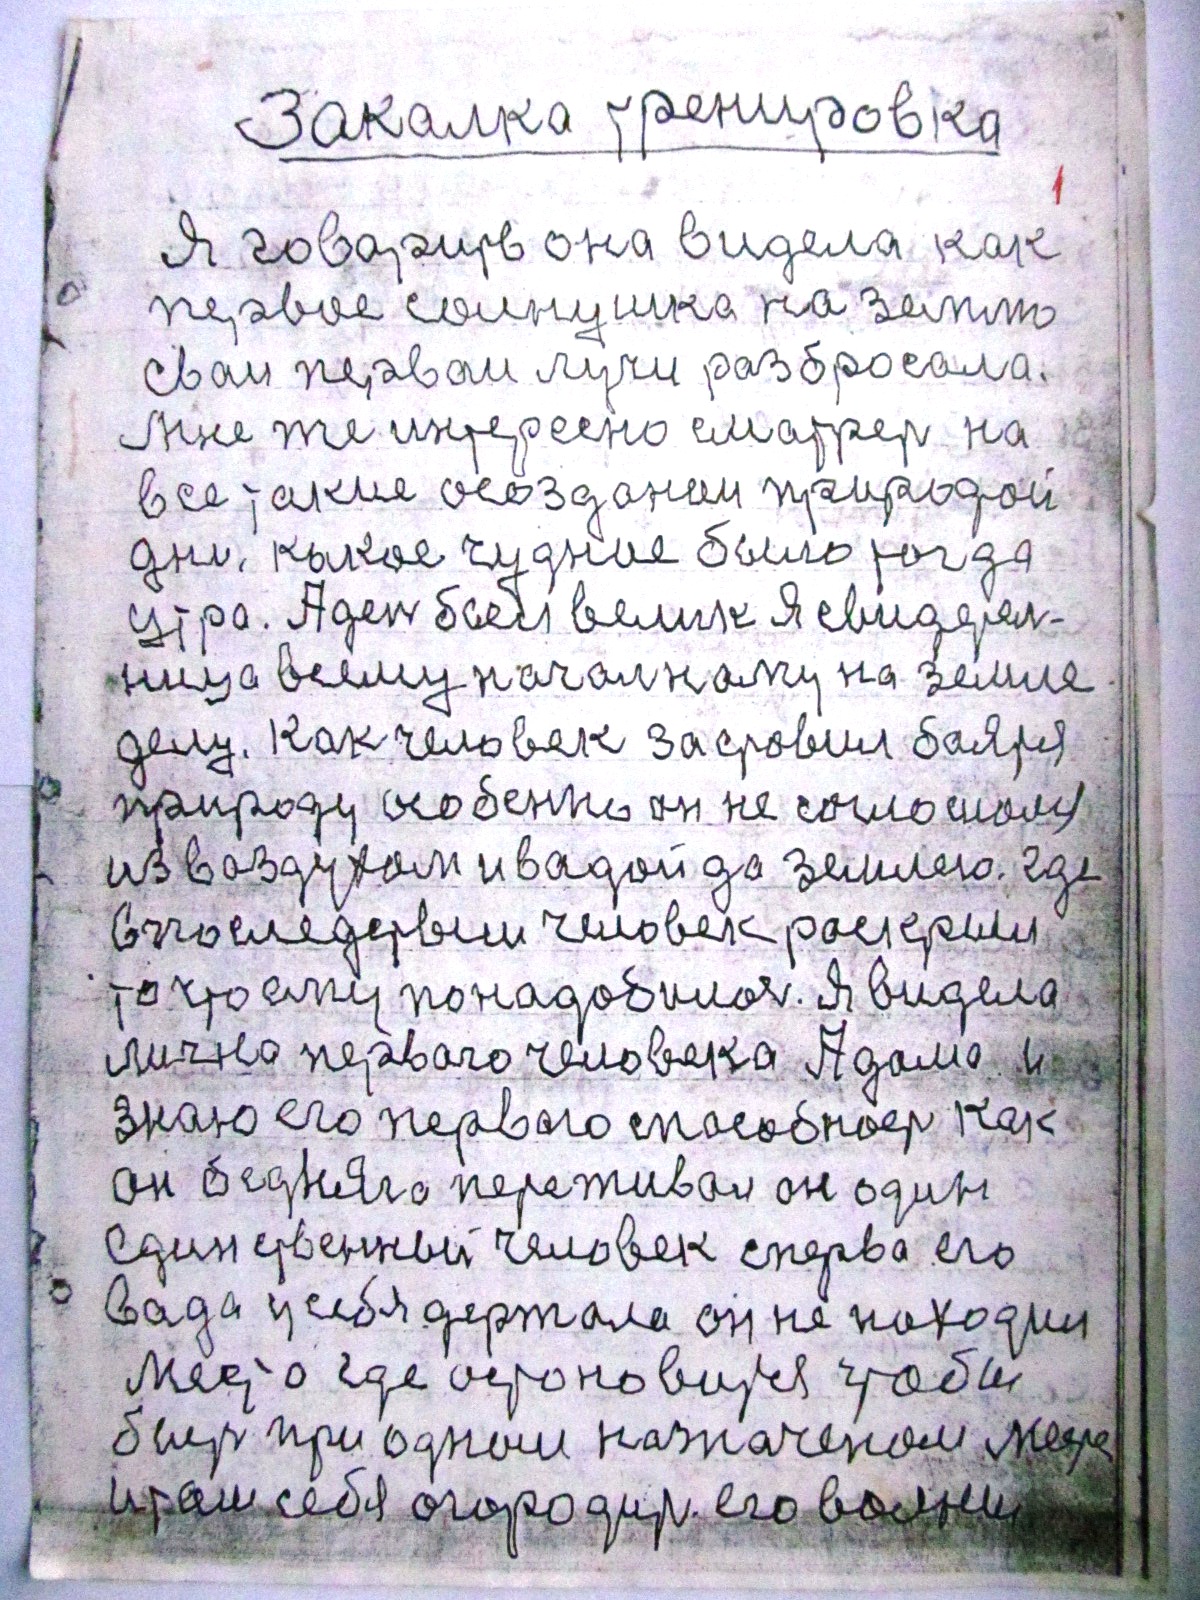 Закалка тренировка
1
Я говарить она видела как
первое солнушка на землю
сваи перваи лучи разбросала.
Мне же интересно сматрет на
все такие осозданеи природой
дни. какое чудное было тогда
утра. Адет был велик я свидетел-
ница всему началному на земле
делу. Как человек заставил боятя
природу особенно он не соглошолс
из воздухом и вадой да землею. Где
в последствии человек раскрыл
то что ему понадобилос. Я видела
лична первого человека Адама и
знаю его первого способност как
он бедняга переживал он один
единственный человек сперва его
вада у себя держала он не находил
место где остоновится чтобы
быт при одном назначеном месте
и там себя огородит. его волны